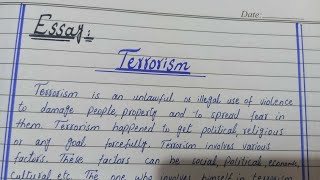 Date:
Essay:
Terrorism
Terrorism is an unlawful or illegal use of violence
to damage people, property and to spread fear in
them. Terrorism happened to get political, religious
or any goal forcefully. Terrorism involves various
factors. These factors can be social, political, economic,
cultural etc. The one who involves himself in terrorism